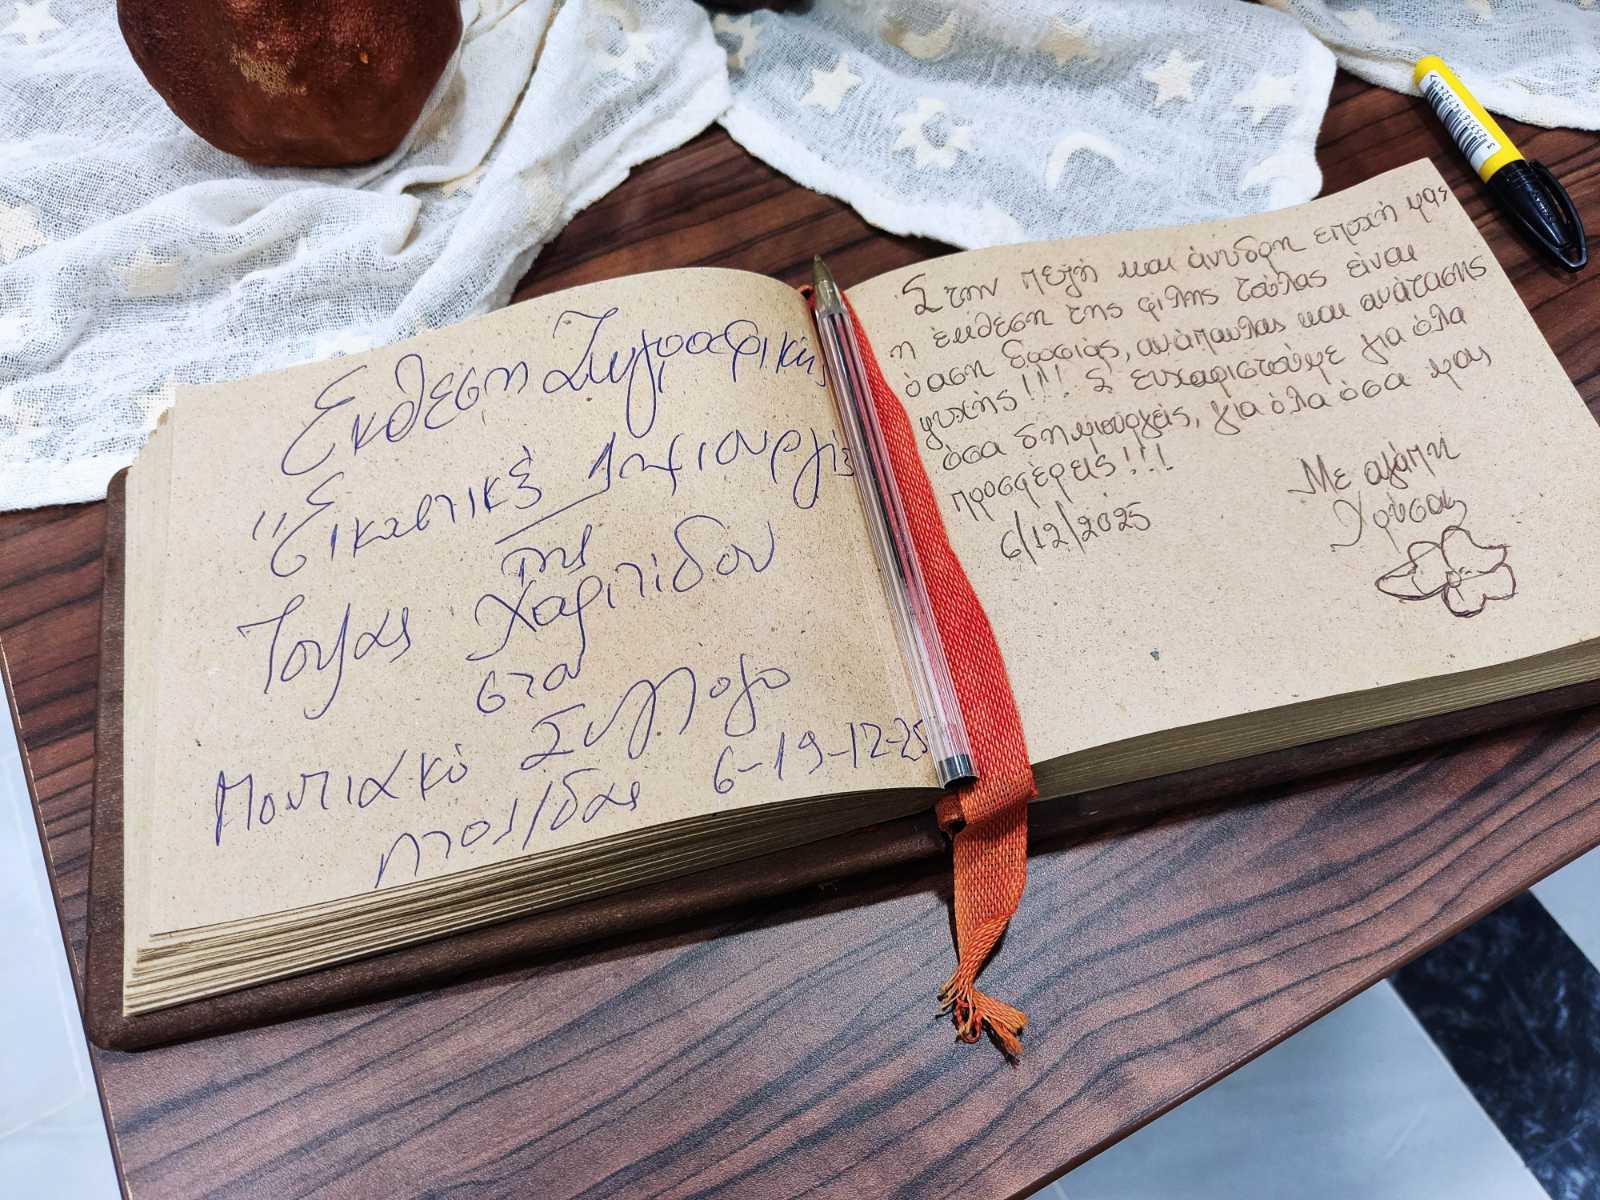 Έκθεση Ζωγραφικής
"Εικαστικές Δημιουργίες
της
Τούλας Χαριτίδου
στον
Ποντιακό Σύλλογο
Πτολ/δας 6-19-12-25
Στην πεζή και άνυδρη εποχή μας
η έκθεση της φίλης Τούλας είναι
όαση δροσιάς, ανάπαυλας και ανάτασης
ψυχής!!! Σ' ευχαριστούμε για όλα
όσα δημιουργείς, για όλα όσα μας
προσφέρεις!!!
6/12/2025
Με αγάπη
Χρύσα